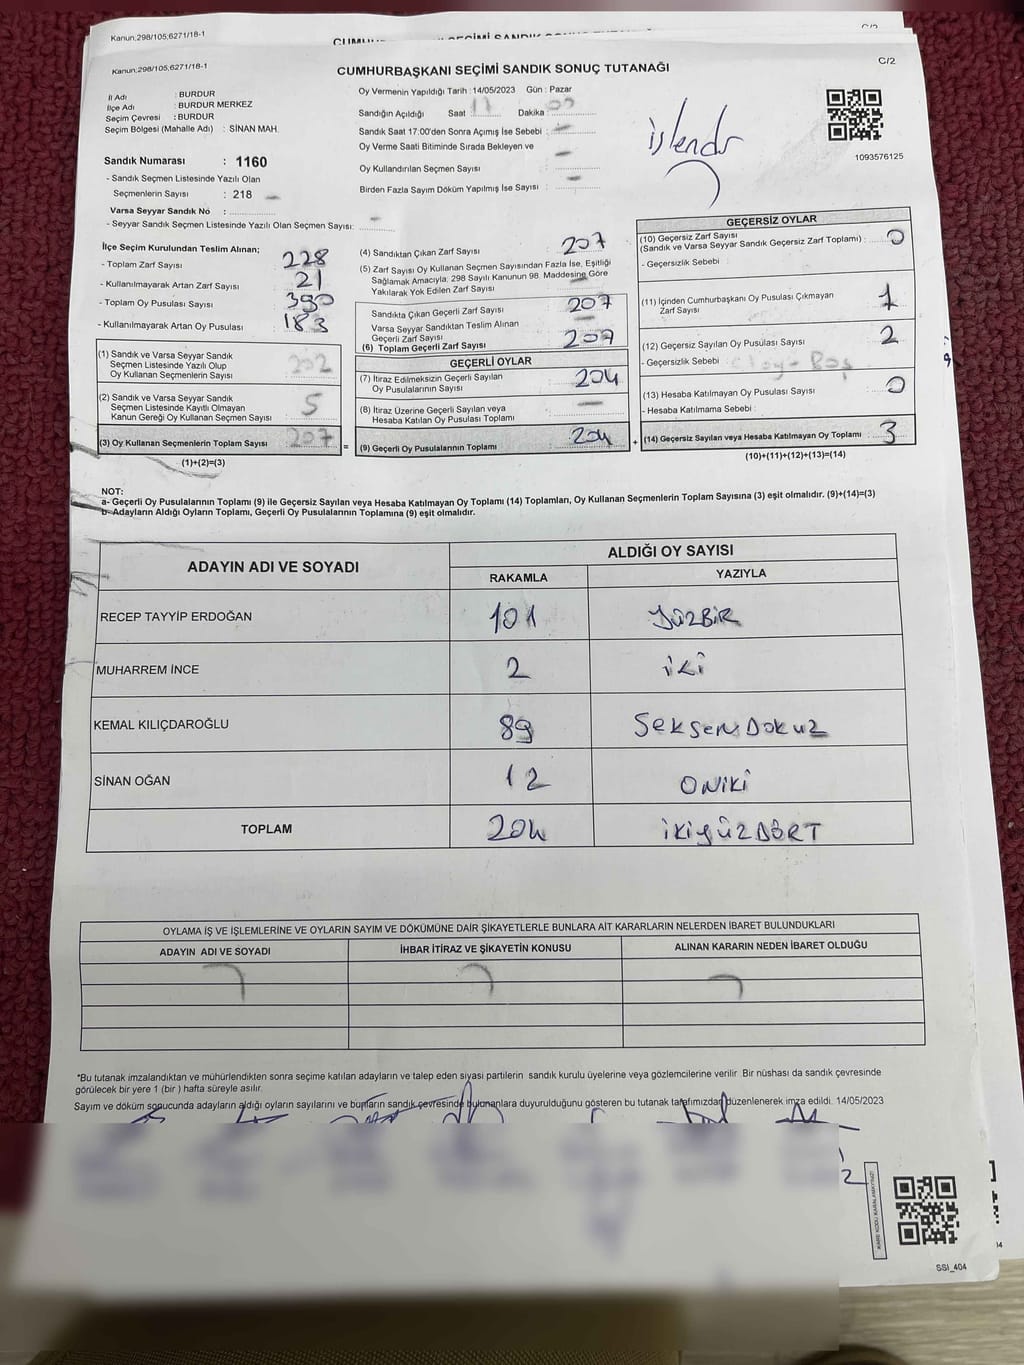 Kanun;298/105;6271/18-1
Kanun;298/105;6271/18-1
C/2
CUMHURBAŞKANI SEÇİMİ SANDIK SONUÇ TUTANAĞI
İl Adı : BURDUR
İlçe Adı : BURDUR MERKEZ
Seçim Çevresi : BURDUR
Seçim Bölgesi (Mahalle Adı) : SİNAN MAH.
Sandık Numarası : 1160
- Sandık Seçmen Listesinde Yazılı Olan
Seçmenlerin Sayısı : 218 -
Varsa Seyyar Sandık No :
- Seyyar Sandık Seçmen Listesinde Yazılı Olan Seçmen Sayısı: -
Oy Vermenin Yapıldığı Tarih : 14/05/2023 Gün : Pazar
Sandığın Açıldığı Saat : 17 Dakika
Sandık Saat 17:00'den Sonra Açımış İse Sebebi : -
Oy Verme Saati Bitiminde Sırada Bekleyen ve
Oy Kullandırılan Seçmen Sayısı : -
Birden Fazla Sayım Döküm Yapılmış İse Sayısı : -
işlendi
1093576125
İlçe Seçim Kurulundan Teslim Alınan;
- Toplam Zarf Sayısı 228
- Kullanılmayarak Artan Zarf Sayısı 21
- Toplam Oy Pusulası Sayısı 390
- Kullanılmayarak Artan Oy Pusulası 183
(1) Sandık ve Varsa Seyyar Sandık
Seçmen Listesinde Yazılı Olup
Oy Kullanan Seçmenlerin Sayısı 202
(2) Sandık ve Varsa Seyyar Sandık
Seçmen Listesinde Kayıtlı Olmayan
Kanun Gereği Oy Kullanan Seçmen Sayısı 5
(3) Oy Kullanan Seçmenlerin Toplam Sayısı 207 =
(1)+(2)=(3)
(4) Sandıktan Çıkan Zarf Sayısı 207
(5) Zarf Sayısı Oy Kullanan Seçmen Sayısından Fazla İse, Eşitliği
Sağlamak Amacıyla; 298 Sayılı Kanunun 98. Maddesine Göre
Yakılarak Yok Edilen Zarf Sayısı -
Sandıkta Çıkan Geçerli Zarf Sayısı 207
Varsa Seyyar Sandıktan Teslim Alınan
Geçerli Zarf Sayısı -
(6) Toplam Geçerli Zarf Sayısı 207
GEÇERLİ OYLAR
(7) İtiraz Edilmeksizin Geçerli Sayılan
Oy Pusulalarının Sayısı 204
(8) İtiraz Üzerine Geçerli Sayılan veya
Hesaba Katılan Oy Pusulası Toplamı -
(9) Geçerli Oy Pusulalarının Toplamı 204 +
GEÇERSİZ OYLAR
(10) Geçersiz Zarf Sayısı
(Sandık ve Varsa Seyyar Sandık Geçersiz Zarf Toplamı) : 0
- Geçersizlik Sebebi :
(11) İçinden Cumhurbaşkanı Oy Pusulası Çıkmayan
Zarf Sayısı 1
(12) Geçersiz Sayılan Oy Pusulası Sayısı 2
- Geçersizlik Sebebi Boş
(13) Hesaba Katılmayan Oy Pusulası Sayısı 0
- Hesaba Katılmama Sebebi :
(14) Geçersiz Sayılan veya Hesaba Katılmayan Oy Toplamı 3
(10)+(11)+(12)+(13)=(14)
NOT:
a- Geçerli Oy Pusulalarının Toplamı (9) ile Geçersiz Sayılan veya Hesaba Katılmayan Oy Toplamı (14) Toplamları, Oy Kullanan Seçmenlerin Toplam Sayısına (3) eşit olmalıdır. (9)+(14)=(3)
b- Adayların Aldığı Oyların Toplamı, Geçerli Oy Pusulalarının Toplamına (9) eşit olmalıdır.
ADAYIN ADI VE SOYADI ALDIĞI OY SAYISI
RAKAMLA YAZIYLA
RECEP TAYYİP ERDOĞAN 101 YÜZBİR
MUHARREM İNCE 2 İKİ
KEMAL KILIÇDAROĞLU 89 SEKSENDOKUZ
SİNAN OĞAN 12 ONİKİ
TOPLAM 204 İKİYÜZDÖRT
OYLAMA İŞ VE İŞLEMLERİNE VE OYLARIN SAYIM VE DÖKÜMÜNE DAİR ŞİKAYETLERLE BUNLARA AİT KARARLARIN NELERDEN İBARET BULUNDUKLARI
ADAYIN ADI VE SOYADI İHBAR İTİRAZ VE ŞİKAYETİN KONUSU ALINAN KARARIN NEDEN İBARET OLDUĞU
*Bu tutanak imzalandıktan ve mühürlendikten sonra seçime katılan adayların ve talep eden siyasi partilerin sandık kurulu üyelerine veya gözlemcilerine verilir. Bir nüshası da sandık çevresinde
görülecek bir yere 1 (bir ) hafta süreyle asılır.
Sayım ve döküm sonucunda adayların aldığı oyların sayılarını ve bunların sandık çevresinde bulunanlara duyurulduğunu gösteren bu tutanak tarafımızdan düzenlenerek imza edildi. 14/05/2023
SSI_404